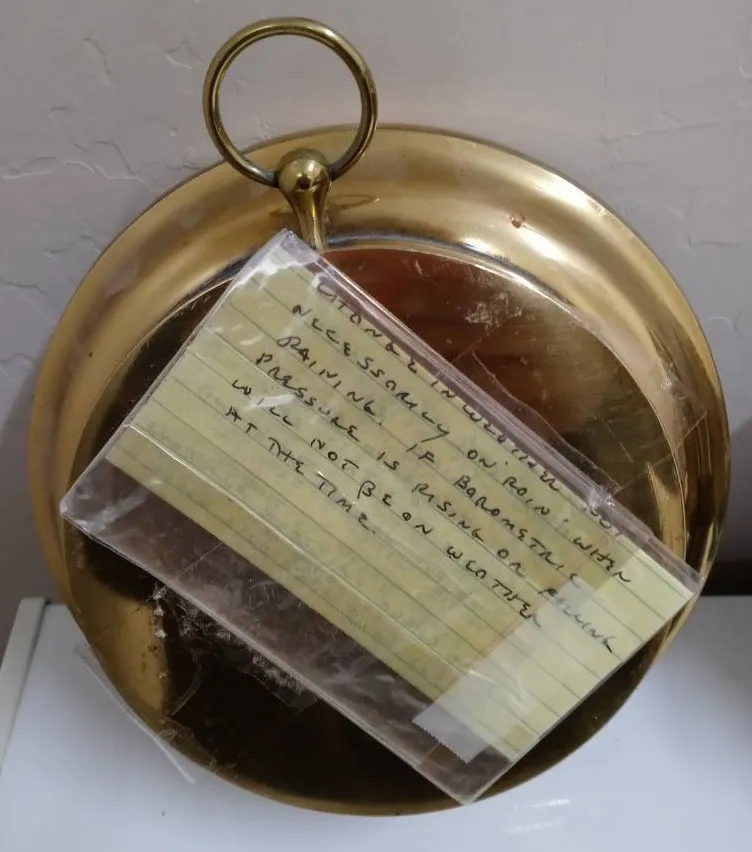 CHANGE IN WEATHER NOT
NECESSARILY ON RAIN. WHEN
RAINING. IF BAROMETRIC
PRESSURE IS RISING OR FALLING
WILL NOT BE ON WEATHER
AT THE TIME.